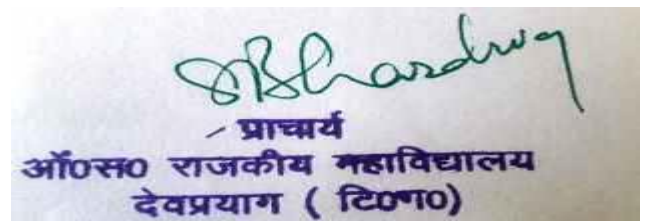 SBhardwaj
प्राचार्य
ऑ०स० राजकीय महाविद्यालय
देवप्रयाग ( टि०ग०)